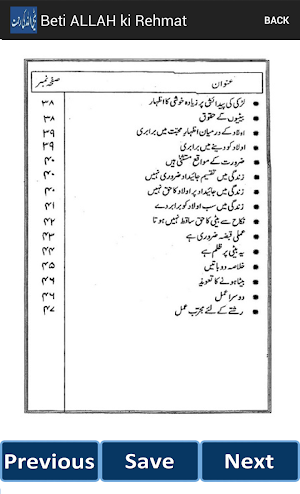 Beti ALLAH ki Rehmat
BACK
عنوان صفحہ نمبر
لڑکی کی پیدائش پر زیادہ خوشی کا اظہار ۳۸
بیٹیوں کے حقوق ۳۸
اولاد کے درمیان اظہار محبت میں برابری ۳۹
اولاد کو دینے میں برابری ۳۹
ضرورت کے مواقع مستثنیٰ ہیں ۴۰
زندگی میں تقسیم جائیداد ضروری نہیں ۴۰
زندگی میں جائیداد پر اولاد کا حق نہیں ۴۰
زندگی میں سب اولاد کو برابر دے ۴۱
نکاح سے بیٹی کا حق ساقط نہیں ہوتا ۴۲
عملی قبضہ ضروری ہے ۴۳
یہ بیٹی پر ظلم ہے ۴۴
خلاصہ دو باتیں ۴۵
بیٹا ہونے کا تعویذ ۴۶
دوسرا عمل ۴۶
رشتے کے لئے مجرّب عمل ۴۷
Previous
Save
Next